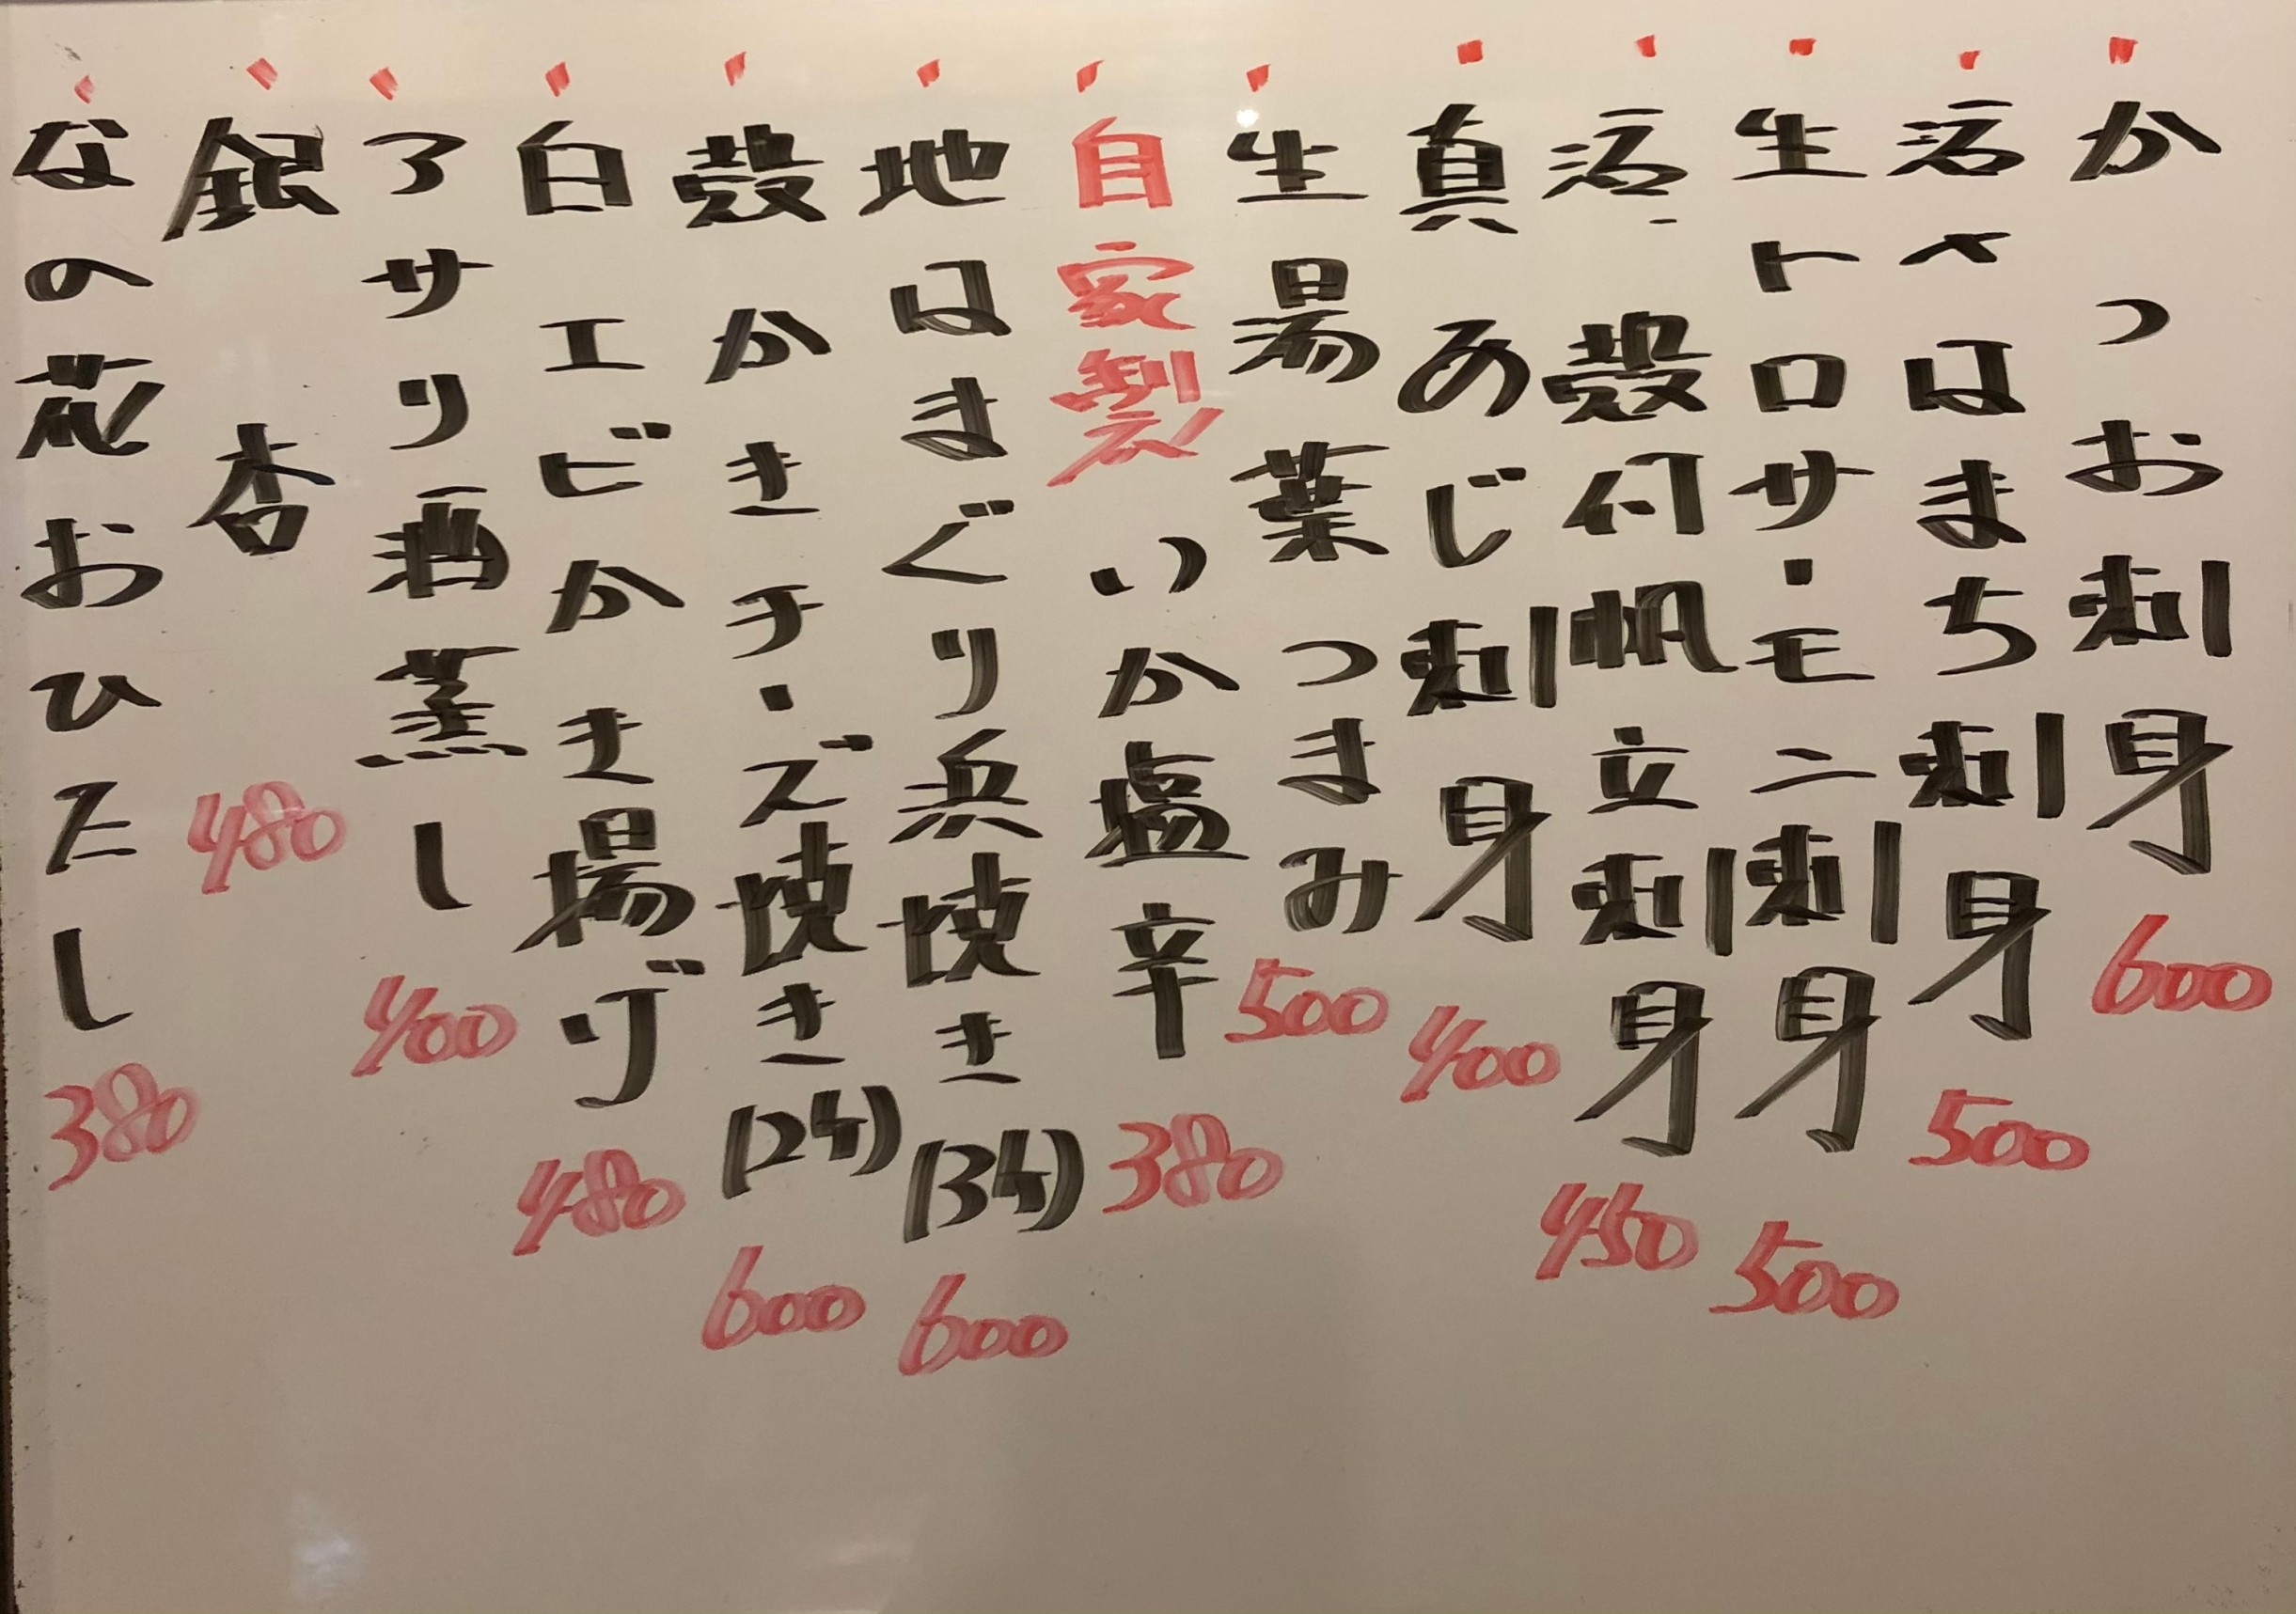 かつお刺身 600
活〆はまち刺身 500
生トロサーモン刺身 500
活殻付帆立刺身 450
真あじ刺身 400
生湯葉つまみ 500
自家製いか塩辛 380
地はまぐり浜焼き(3ケ) 600
殻かきチーズ焼き(2ケ) 600
白エビかき揚げ 480
アサリ酒蒸し 400
銀杏 480
なの花おひたし 380